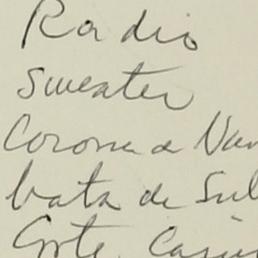 Radio
Sweater
Corona a Nan
bata de Sul
Gote. Casi